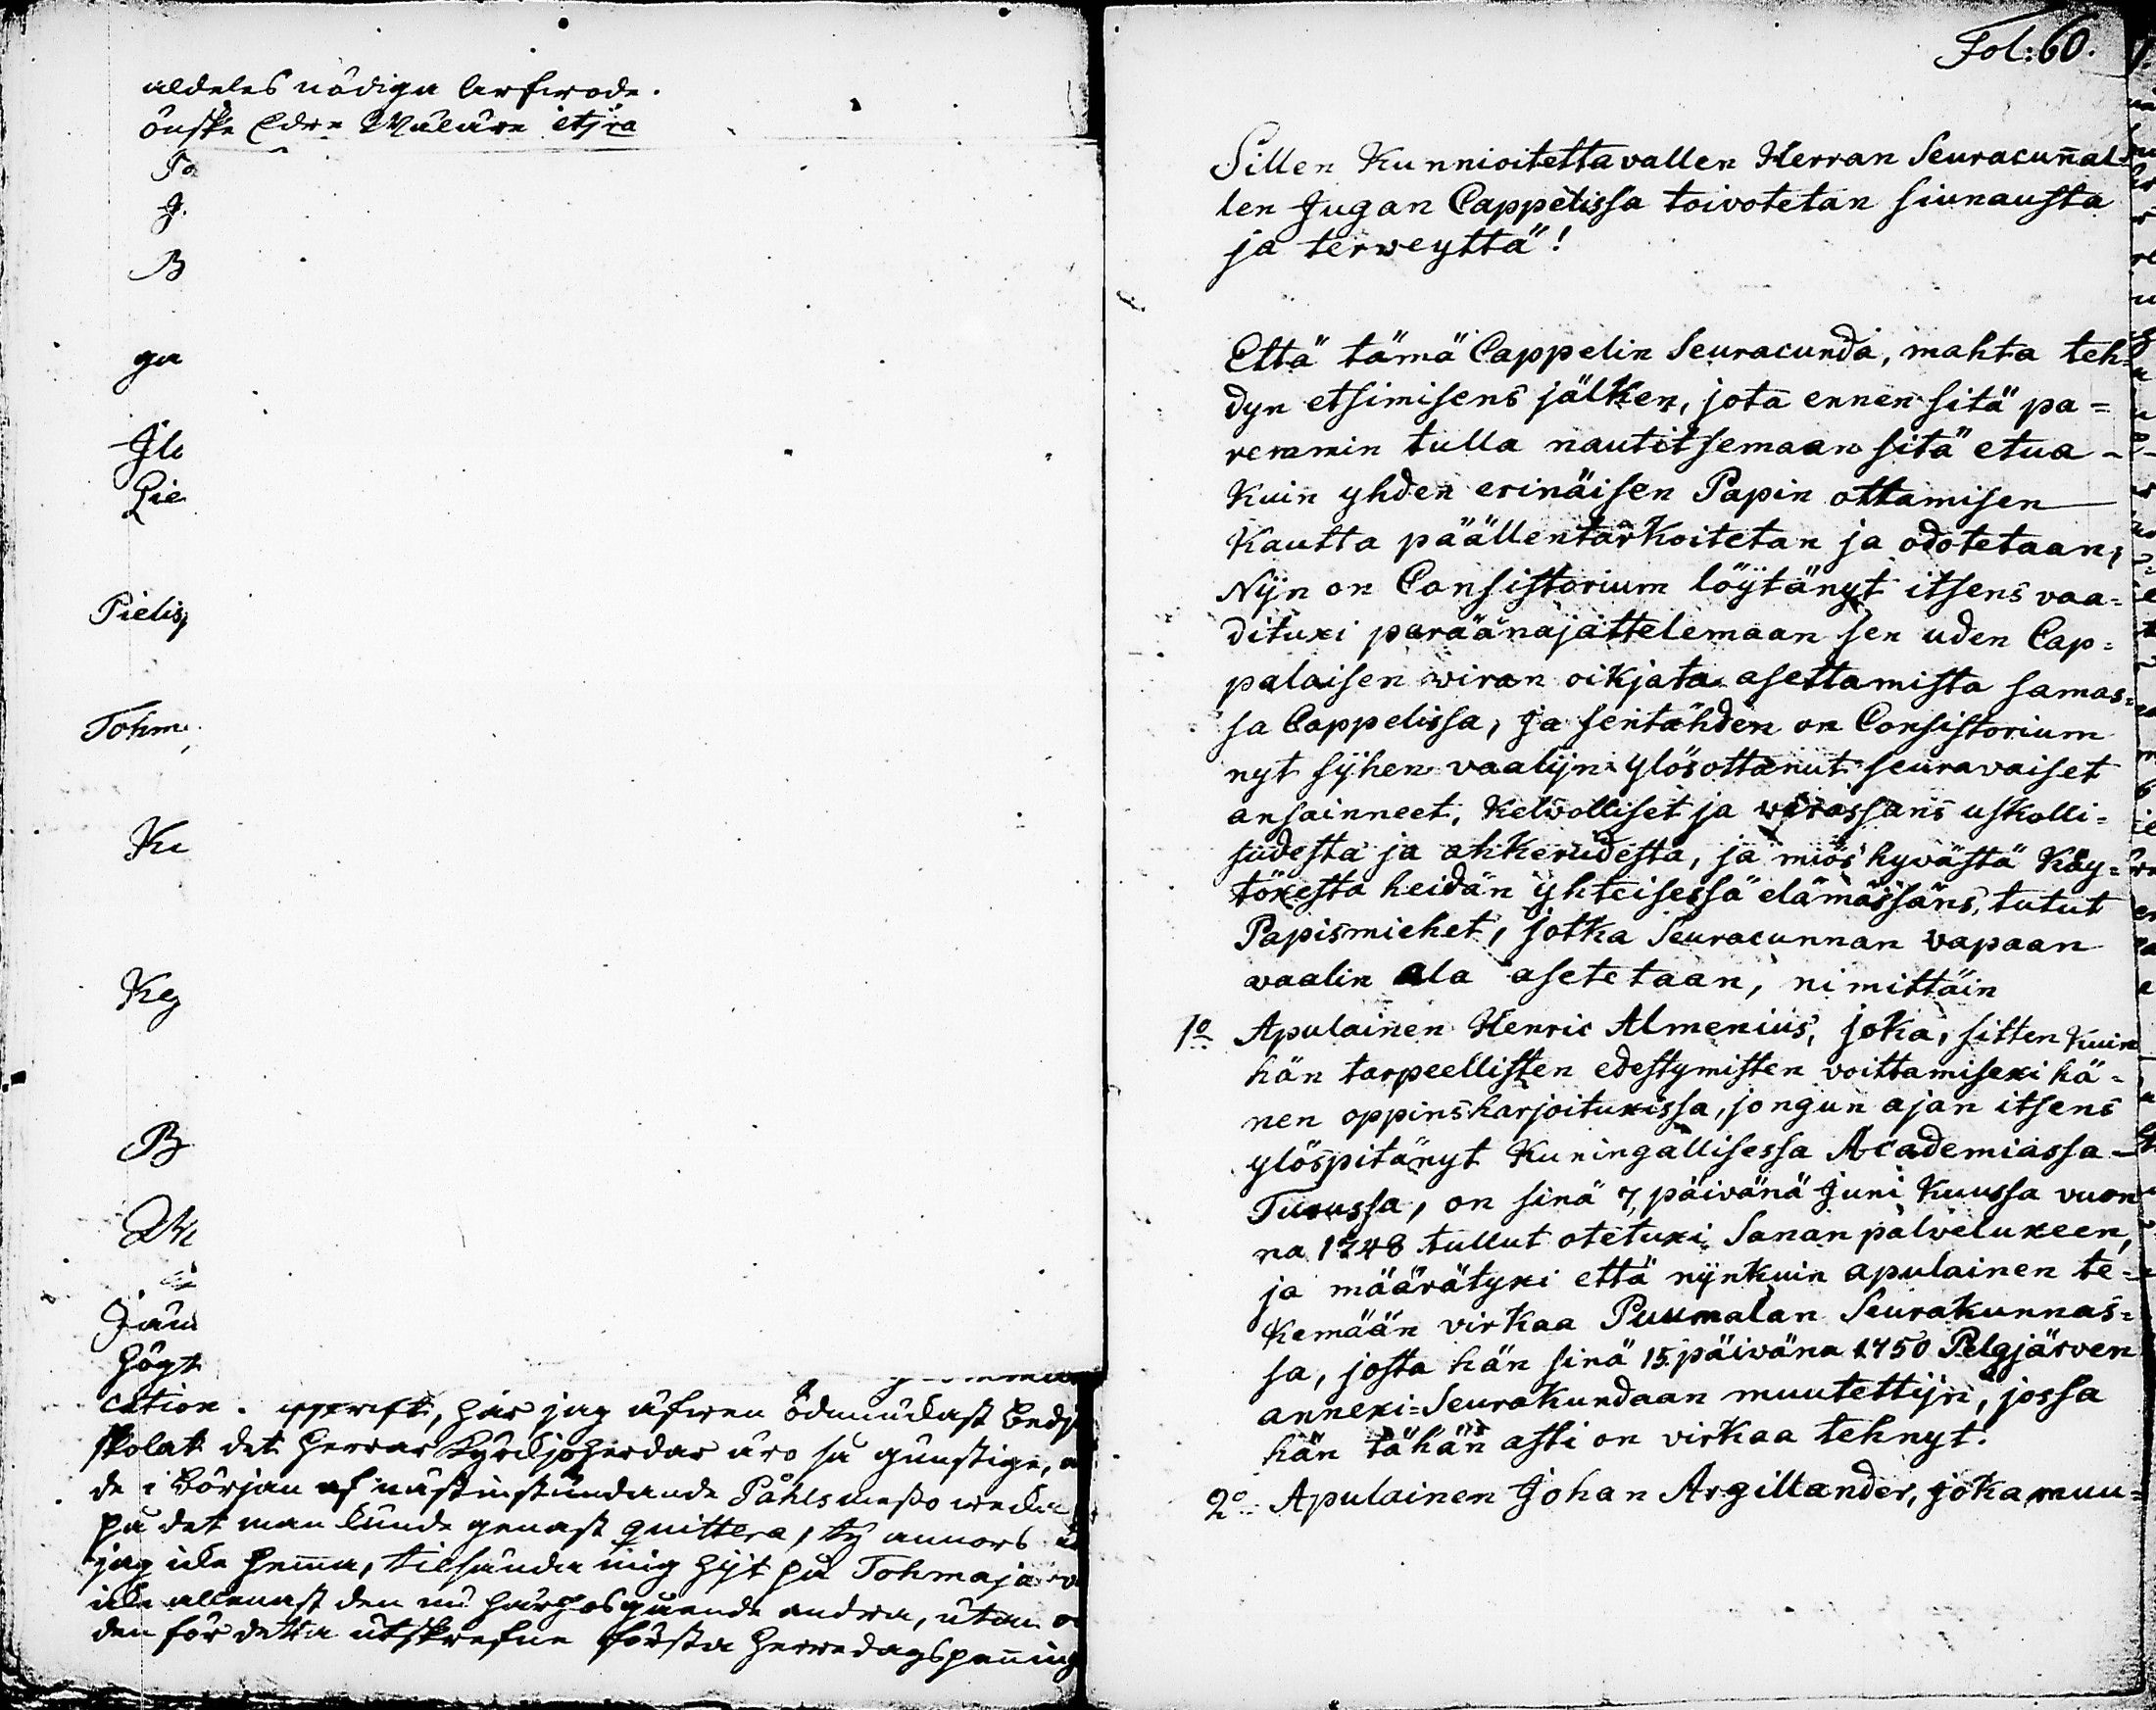 aldeles nådiga
önske Edre
To
J.
B
ga
Ilo
Lie
Pielis
Tohm
Ki
Keg
B
högt
cation. härjag äfwen ödmiukast
skolat det herrar Kyrckjoherdar äro så gunstige,
de i början af nästinstundande Påhlsmesso
på det man kunde genast quittera, ty annors
jag icke hemma, tilsända mig hijt på Tohmajärv
icke allenast den nu härhosgående andra, utan
den för detta utskrefne första herredagspenning
Fol: 60.
Sillen Kunnioitettavallen Herran Seuracunnal-
len Jugan Cappelissa toivotetan siunausta
ja terweyttä!
Että tämä Cappelin Seuracunda, mahta teh-
dyn etsimisens jälken, jota ennen sitä pa=
remmin tulla nautitsemaan sitä etua
Kuin yhden erinäisen Papin ottamisen
Kautta päällentarkoitetan ja odotetaan,
Nijn on Consistorium löytänyt itsens vaa-
dituxi peräänajattelemaan sen uden Cap=
palaisen wiran oikjata asettamista samas-
sa Cappelissa, Ja sentähden on Consistorium
nyt sijhen vaalijn ylösottanut seuravaiset
ansainneet, Kelvolliset ja wirassans uskolli-
sudesta ja ahkerudesta, ja miös hywästä Käy-
töxestä heidän yhteisessä elämässäns, tutut
Papismiehet, jotka Seuracunnan vapaan
waalin ala asetetaan, nimittäin
1o Apulainen Henric Almenius, joka, sitten kuin
hän tarpeellisten edestymisten voittamisexi hä-
nen oppinsharjoituxissa, jongun ajan itsens
ylöspitänyt Kuningallisessa Academiassa
Turussa, on sinä 7 päivänä Juni Kuussa vuon
na 1748 tullut otetuxi Sanan palveluxeen,
ja määrätyxi että nijnkuin apulainen te=
kemään virkaa Puumalan Seurakunnas-
sa, josta hän sinä 15 päivänä 1750 Pelgjärven
annexi=Seurakundaan muutettijn, jossa
hän tähän asti on virkaa tehnyt.
2o Apulainen Johan Argillander, joka muu-